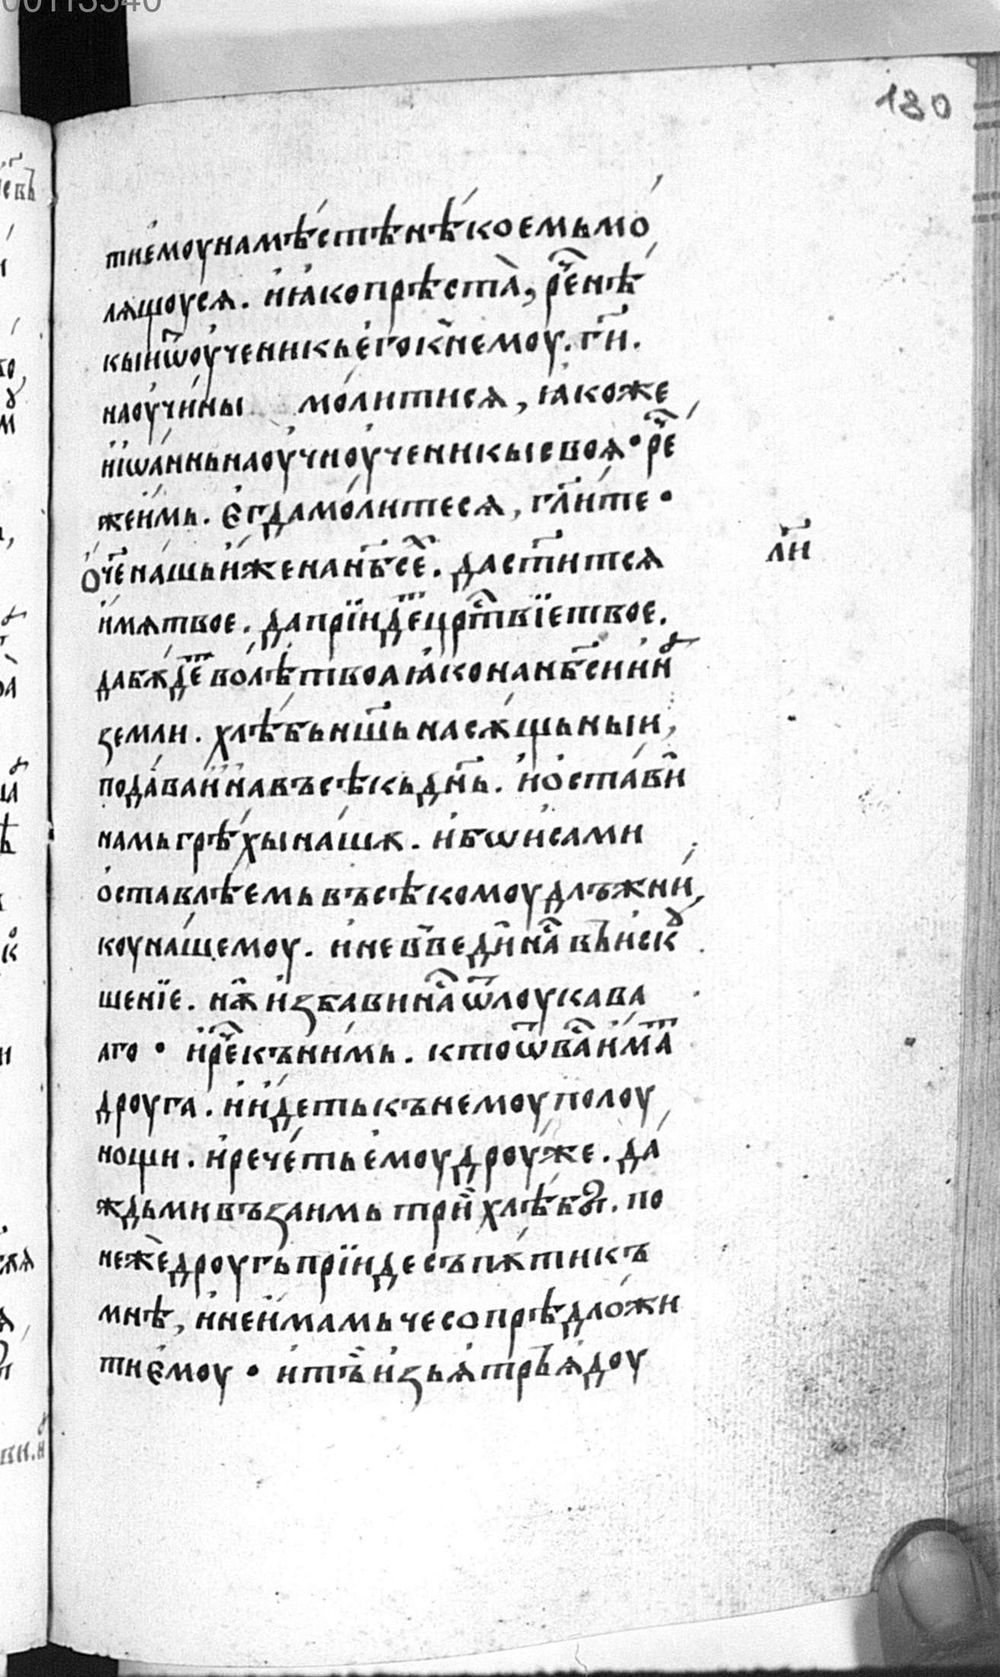 130
тиемоунамѣстѣнѣкоемьмо
лѧщоусѧ. и҆ꙗкопрѣста̀, ре҄нѣ
кыиѿоу҆ченикьего̀к̾немоу. г҃и.
наоу҆чины мо́литисѧ, ꙗ҆коже
ни҆ѡ҆а́нньнаоу҆чиоу҆ченикысвоѧ • ре҄
жеи҆мь. є҆гдамо́литесѧ, г҃ли́те •
О҆ч҃енашьи҆женанб҃се҄. даст҃итсѧ
л҃и
и҆мѧтвое. даприїиде҄црⷭ҇твїетвое.
дабѫ́деⷮволѣ́твоаꙗ҆конанб҃сиин꙼
земли. хлѣ́бьнш҃ьнасѫщьныи,
пода́ваи҆навъсѣ́кьдн҃ь. и҆ѡ҆ста́ви
намьгрѣ́хына́шѫ. и҆бѡи҆сами
о҆ставлѣ́емьвъсѣ́комоудлъжни́
коуна́шемоу. и҆невъведи҆на҄въи҆скꙋ
шенїе. нѫ҆и҆збавина҄ѿлоукава
аго • и҆ре҄къни́мь. ктоѿва҄и҆маⷮ
дроуга. и҆и҆детькънемоуполоу
нощи. и҆рече́тье҆моудроу́же. да́
ждьмивъзаимь три̏хлѣ́бꙑ. по
нежѐдроугьприїидесъпѫтикъ
мнѣ, и҆неи҆мамьчесопрѣдложи
тие҆моу • и҆тъ̏и҆зьѧ҆трьѧ҆доу